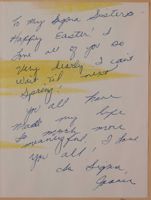 To my Sigma Sisters
Happy Easter! I
love all of you so
very dearly. I can't
wait 'til next
Spring!
you all have
made my life
so much more
meaningful. I love
you all!
In Sigma,